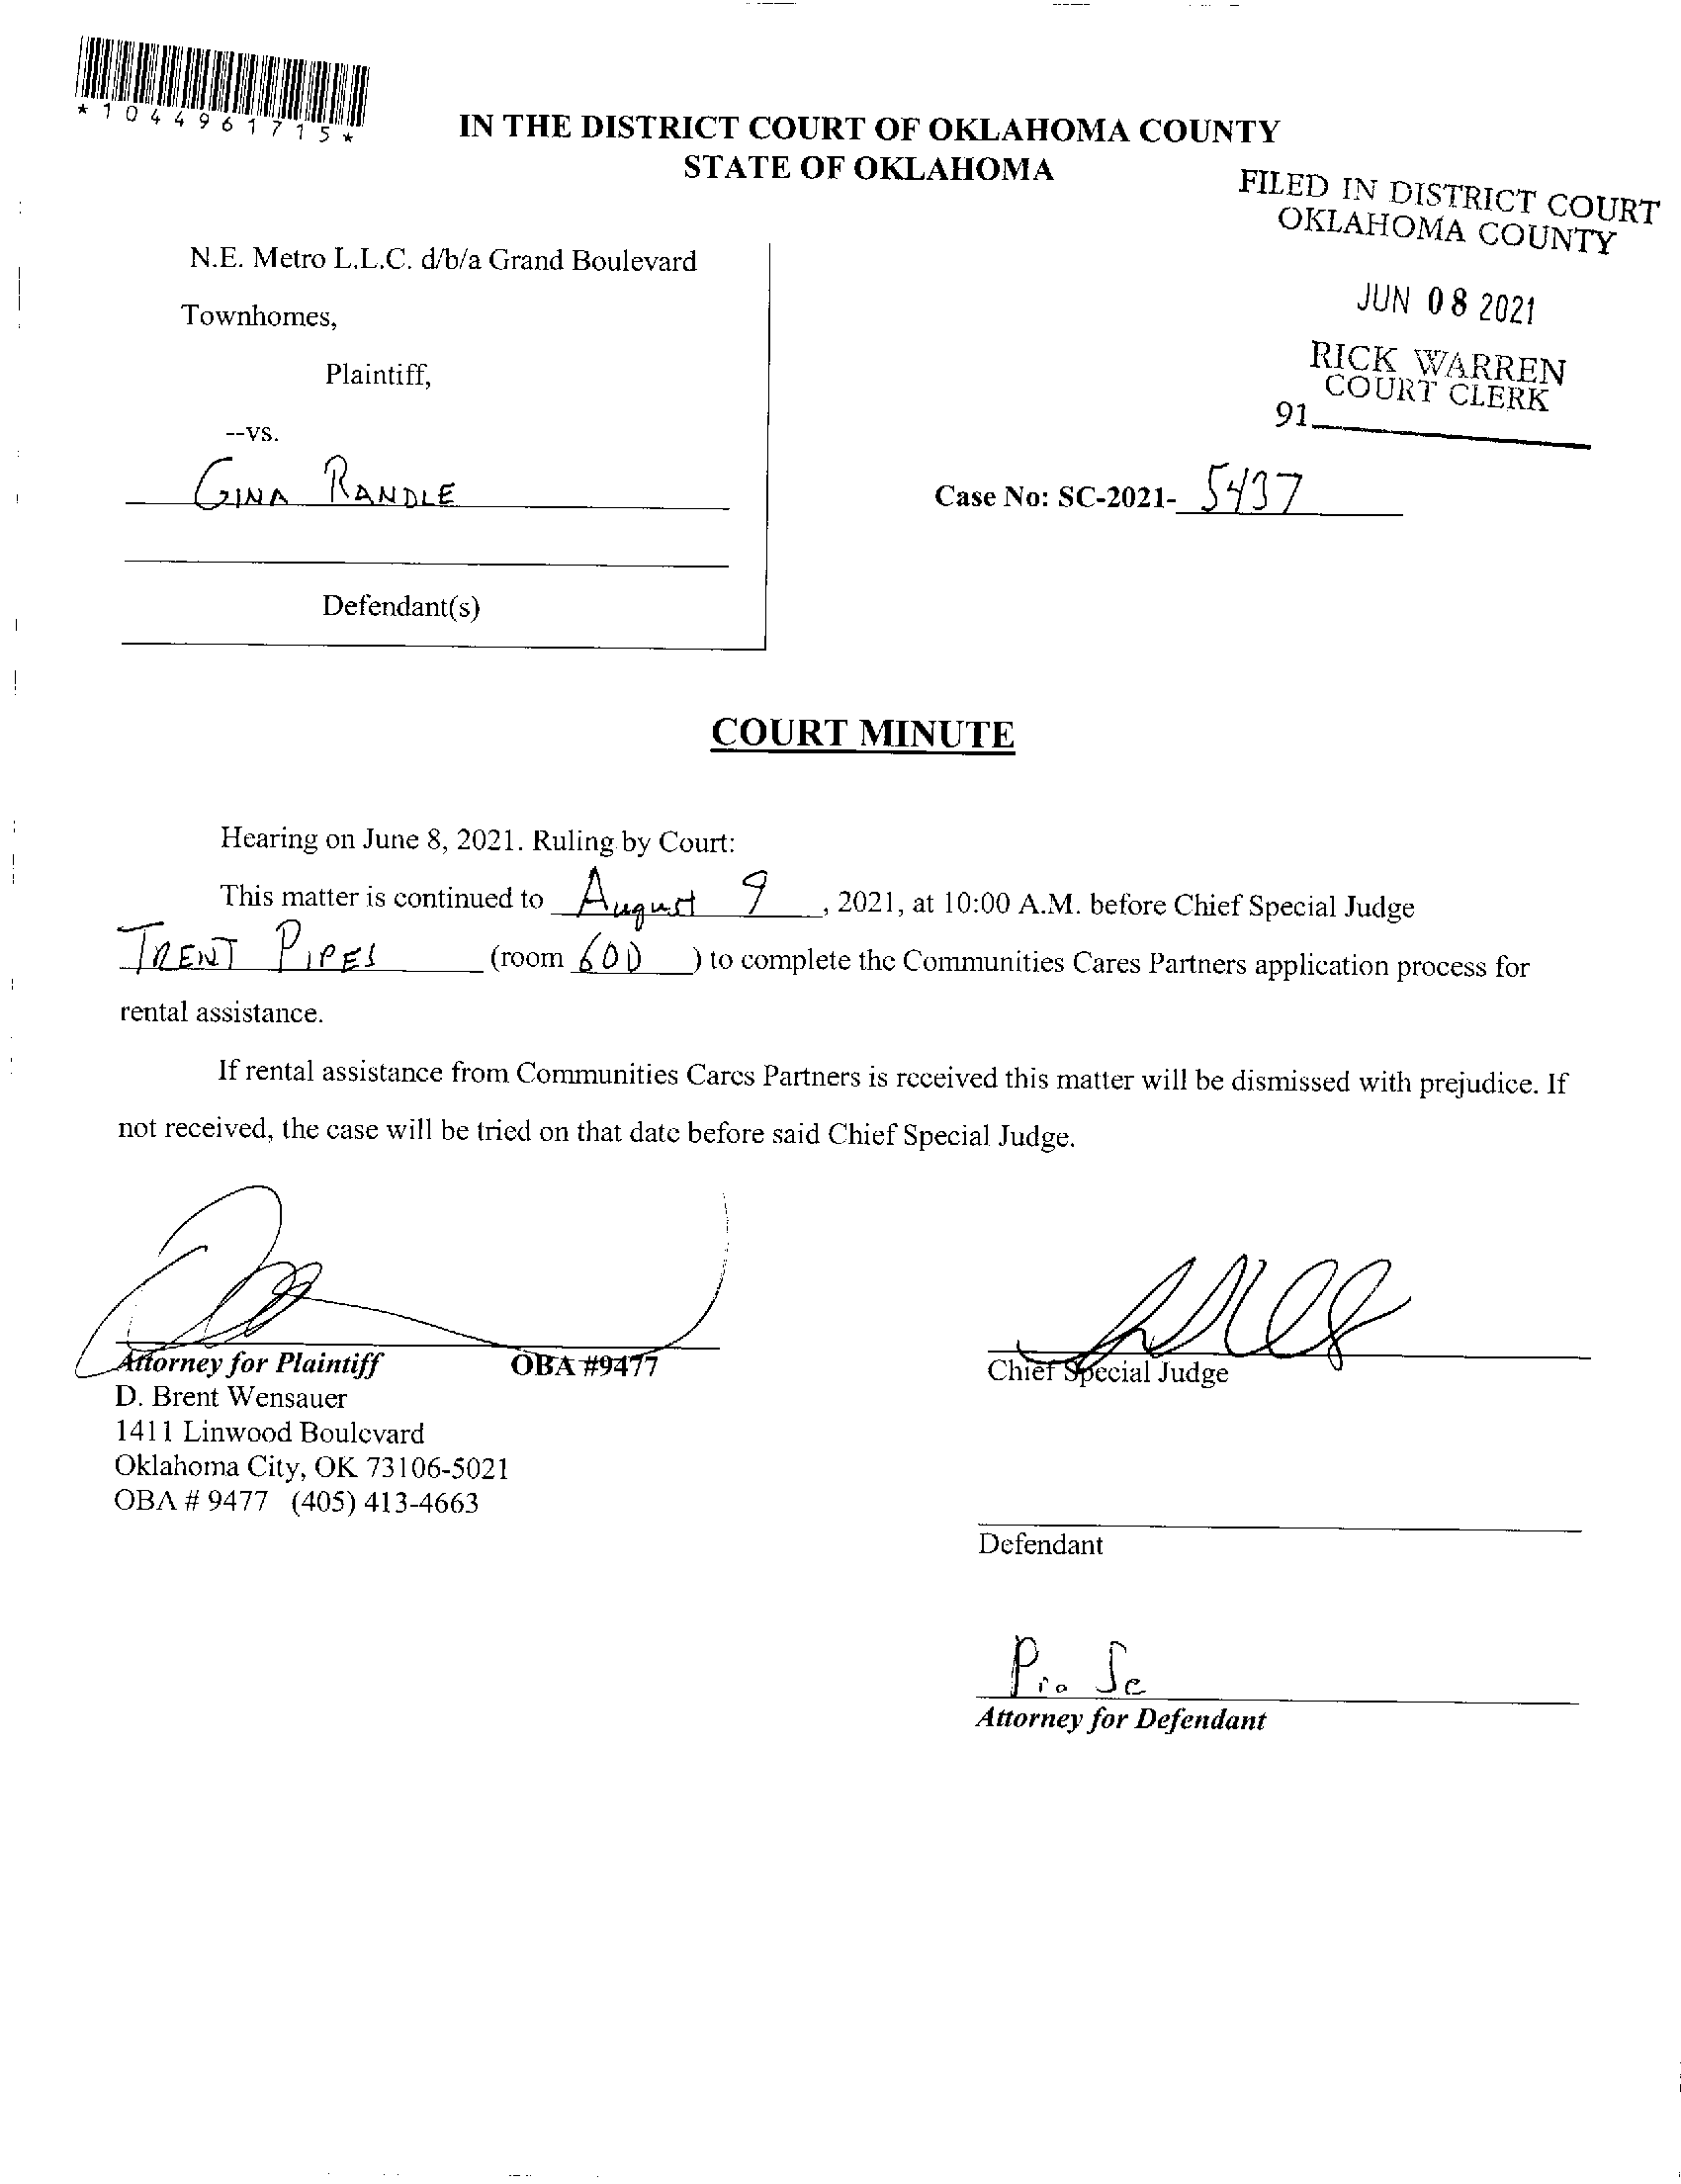 *1044961715*
IN THE DISTRICT COURT OF OKLAHOMA COUNTY
STATE OF OKLAHOMA
FILED IN DISTRICT COURT
OKLAHOMA COUNTY
JUN 08 2021
RICK WARREN
COURT CLERK
91
N.E. Metro L.L.C. d/b/a Grand Boulevard
Townhomes,
Plaintiff,
--vs.
GINA RANDLE
Case No: SC-2021- 5437
Defendant(s)
COURT MINUTE
Hearing on June 8, 2021. Ruling by Court:
This matter is continued to August 9, 2021, at 10:00 A.M. before Chief Special Judge
TRENT PIPES (room 600) to complete the Communities Cares Partners application process for
rental assistance.
If rental assistance from Communities Cares Partners is received this matter will be dismissed with prejudice. If
not received, the case will be tried on that date before said Chief Special Judge.
Attorney for Plaintiff OBA #9477
D. Brent Wensauer
1411 Linwood Boulevard
Oklahoma City, OK 73106-5021
OBA # 9477 (405) 413-4663
Chief Special Judge
Defendant
Pro Se
Attorney for Defendant